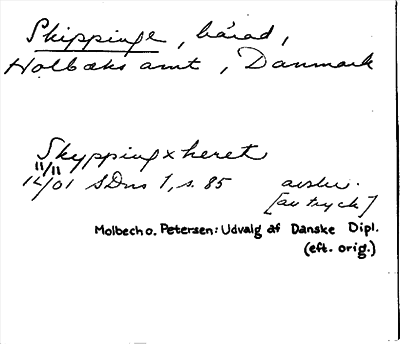 Skippinge, härad,
Holbæks amt, Danmark
Skyppingxheret
11/11
1401 SDns 1, s. 85 avskr.
[av tryck]
Molbech o. Petersen: Udvalg af Danske Dipl.
(eft. orig.)